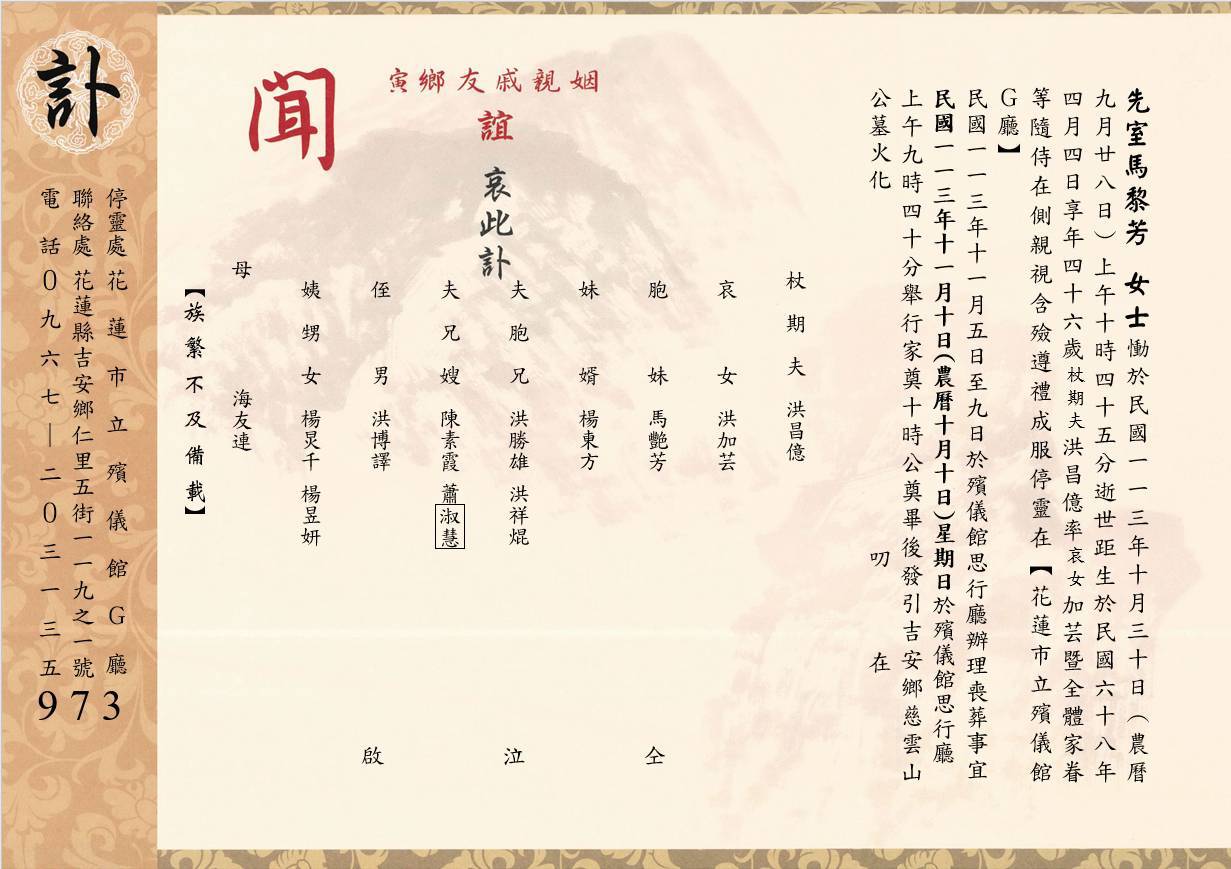 先室馬黎芳 女士慟於民國一一三年十月三十日（農曆
九月廿八日）上午十時四十五分逝世距生於民國六十八年
四月四日享年四十六歲杖期夫洪昌億率哀女加芸暨全體家眷
等隨侍在側親視含殮遵禮成服停靈在【花蓮市立殯儀館
G廳】
民國一一三年十一月五日至九日於殯儀館思行廳辦理喪葬事宜
民國一一三年十一月十日(農曆十月十日)星期日於殯儀館思行廳
上午九時四十分舉行家奠十時公奠畢後發引吉安鄉慈雲山
公墓火化
叨 在
姻親戚友鄉寅
誼
哀此訃
聞
杖期夫 洪昌億
哀女 洪加芸
胞妹 馬艷芳
妹婿 楊東方
夫胞兄 洪勝雄 洪祥焜
夫兄嫂 陳素霞 蕭淑慧
侄男 洪博譯
姨甥女 楊炅千 楊昱妍
母 海友連
【族繁不及備載】
仝 泣 啟
訃
停靈處 花蓮市立殯儀館G廳
聯絡處 花蓮縣吉安鄉仁里五街一一九之一號
電話 0九六七—二0三一三五
973